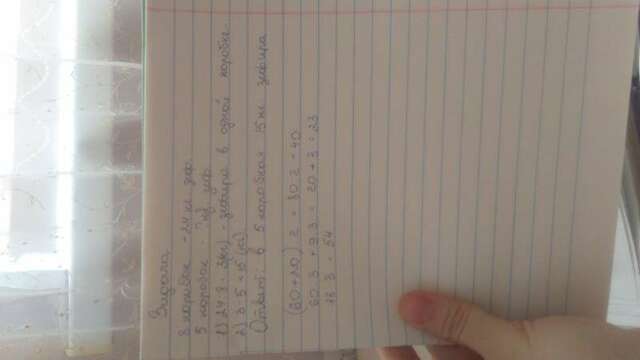 Задача
8 коробок - 24 кг зеф.
5 коробок - ? кг зеф.
1) 24:8 = 3(кг) - зефира в одной коробке.
2) 3·5 = 15 (кг)
Ответ: в 5 коробках 15 кг зефира
(60+20):2 = 80:2 = 40
60:3 + 9:3 = 20 + 3 = 23
18·3 = 54